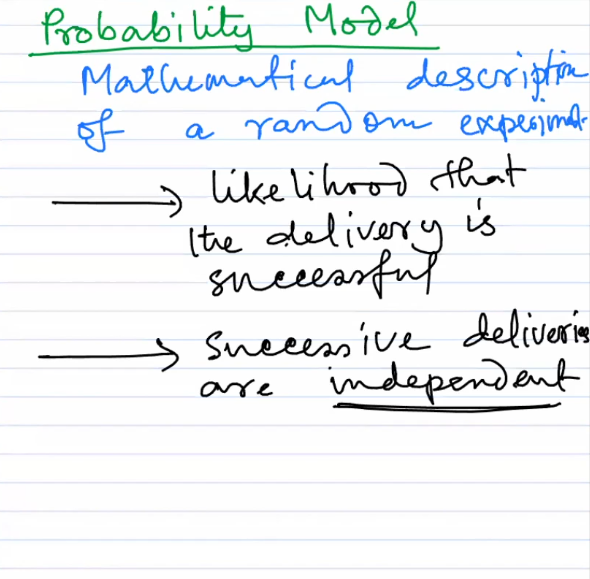 Probability Model
Mathematical description
of a random experiment.
likelihood that
the delivery is
successful
Successive deliveries
are independent